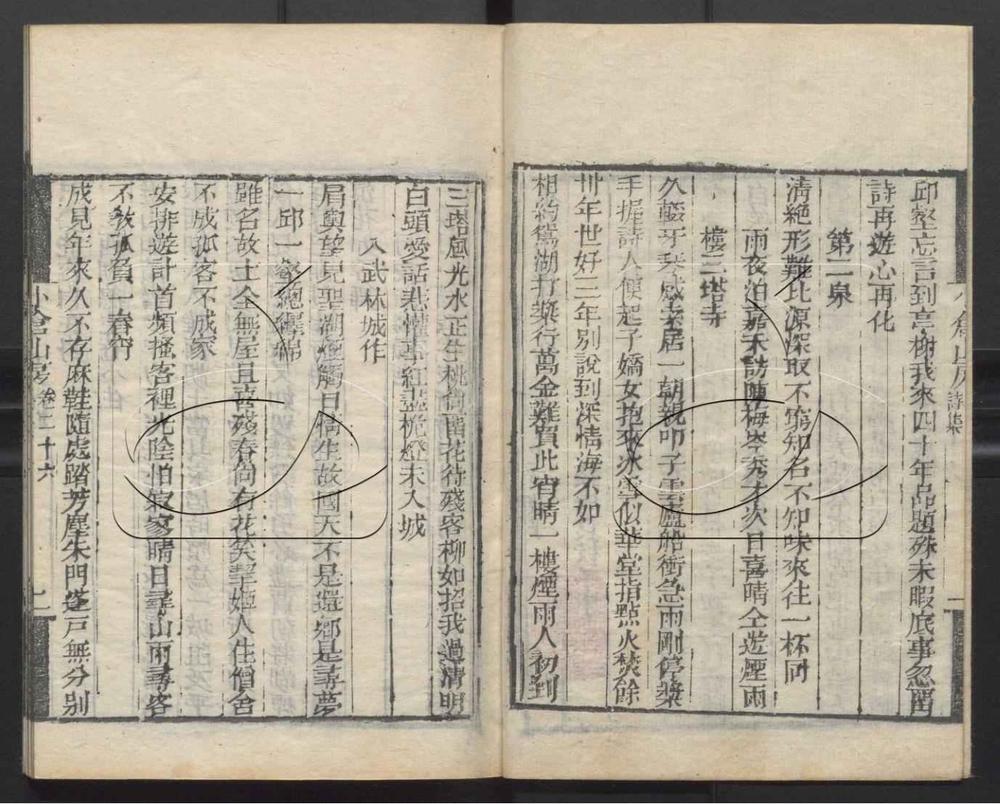 邱壑忘言到亭榭我來四十年品題殊未暇底事忽留
詩再遊心再化
第二泉
清絕形難比源深取不窮知名不知味來往一杯同
雨夜泊嘉禾訪陳梅岑秀才次日喜晴仝遊煙雨
樓三塔寺
久輟牙琴感索居一朝親叩子雲廬船衝急雨剛停槳
手握詩人便起予嬌女抱來冰雪似華堂指點火焚餘
卅年世好三年別說到深情海不如
相約鴛湖打槳行萬金難買此宵晴一樓煙雨人初到
小倉山房詩集
三塔風光水正生桃尚留花待殘客柳如招我過清明
白頭愛話悲懽事紅盡桅燈未入城
入武林城作
肩輿望見聖湖煙觸目橋生故國天不是還鄉是尋夢
一邱一壑總纏綿
雖名故土全無屋且喜殘春尚有花矣挈姬人住僧舍
不成孤客不成家
安排遊計首頻搔客裡光陰怕寂寥晴日尋山雨尋客
不教孤負一春宵
成見年來久不存麻鞋隨處踏芳塵朱門蓬戶無分別
小倉山房 卷二十六